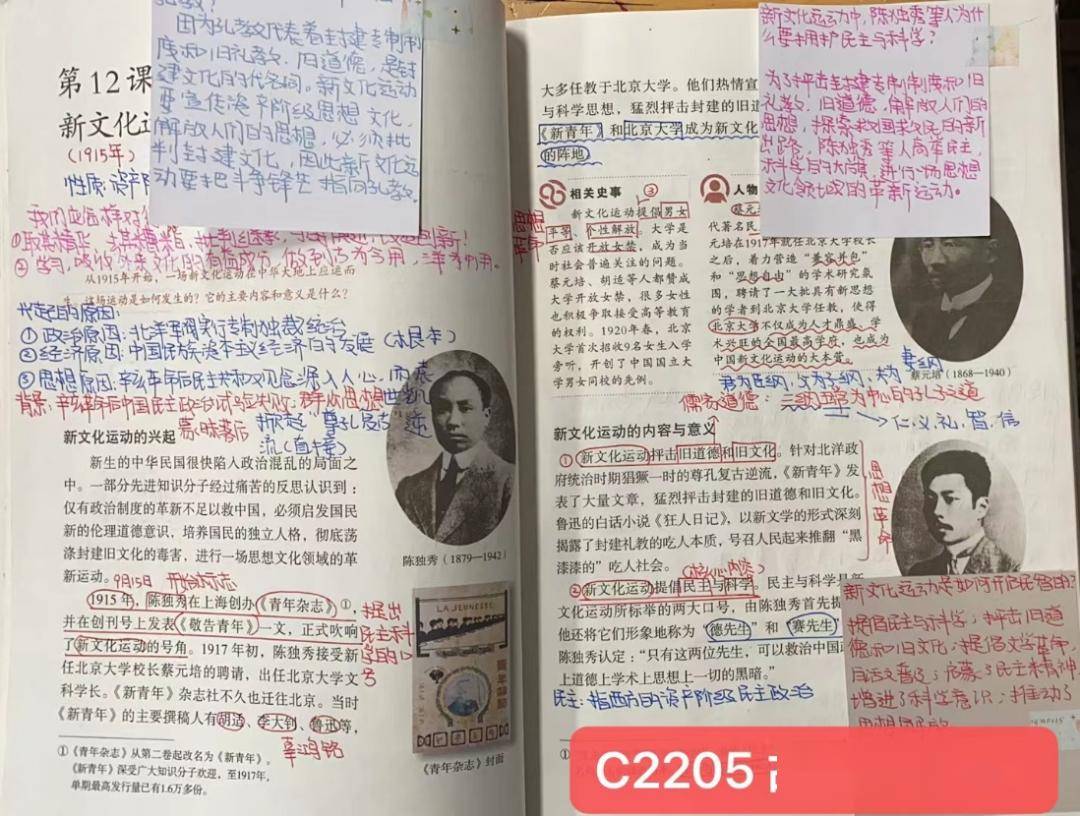 因为孔教代表着封建专制制
度和旧礼教、旧道德,是封
建文化的代名词。新文化运动
要宣传资产阶级思想文化,
解放人们的思想,必须批
判封建文化,因此新文化运
动要把斗争锋芒指向孔教。
第12课
新文化运
(1915年)
性质:资产阶
①取其精华,去其糟粕,批判继承,
从1915年开始,一场新文化运动在中华大地上应运而
生。这场运动是如何发生的?它的主要内容和意义是什么?
兴起的原因:
①政治原因:北洋军阀实行专制独裁统治
②经济原因:中国民族资本主义经济的发展(根本)
③思想原因:辛亥革命后民主共和观念深入人心,而袁
世凯
背景:辛亥革命后中国民主政治试验失败;群众思想
蒙昧落后
掀起尊孔复古逆
流(直接)
新文化运动的兴起
新生的中华民国很快陷入政治混乱的局面之
中。一部分先进知识分子经过痛苦的反思认识到:
仅有政治制度的革新不足以救中国,必须启发国民
新的伦理道德意识,培养国民的独立人格,彻底荡
涤封建旧文化的毒害,进行一场思想文化领域的革
新运动。
9月15日
1915年,陈独秀在上海创办《青年杂志》①,
并在创刊号上发表《敬告青年》一文,正式吹响
了新文化运动的号角。1917年初,陈独秀接受新
任北京大学校长蔡元培的聘请,出任北京大学文
科学长。《新青年》杂志社不久也迁往北京。当时
《新青年》的主要撰稿人有胡适、李大钊、鲁迅等,
辜鸿铭
提出
民主科
学的口
号
陈独秀(1879—1942)
LA JEUNESSE
青年杂志
《青年杂志》封面
①《青年杂志》从第二卷起改名为《新青年》。
《新青年》深受广大知识分子欢迎,至1917年,
单期最高发行量已有1.6万多份。
新文化运动中,陈独秀等人为什
么要拥护民主与科学?
为了抨击封建专制制度和旧
礼教、旧道德,解放人们的
思想,探索救国救民的新
出路,陈独秀等人高举民主、
科学的大旗,进行一场思想
文化领域的革新运动。
大多任教于北京大学。他们热情宣
与科学思想,猛烈抨击封建的旧道
《新青年》和北京大学成为新文化
的阵地
相关史事
③
思想
革命
新文化运动提倡男女
平等、个性解放。大学是
否应该开放女禁,成为当
时社会普遍关注的问题。
蔡元培、胡适等人都赞成
大学开放女禁,很多女性
也积极争取接受高等教育
的权利。1920年春,北京
大学首次招收9名女生入学
旁听,开创了中国国立大
学男女同校的先例。
人物
蔡元
代著名民
元培在1917年就任北京大学校长
之后,着力营造“兼容并包”
和“思想自由”的学术研究氛
围,聘请了一大批具有新思想
的学者到北京大学任教,使得
北京大学不仅成为人才鼎盛、学
术兴旺的全国最高学府,也成为
中国新文化运动的大本营。
蔡元培(1868—1940)
君为臣纲,父为子纲,夫为
妻纲
儒家道德:三纲五常为中心的孔子之道
仁、义、礼、智、信
新文化运动的内容与意义
①新文化运动抨击旧道德和旧文化。针对北洋政
府统治时期猖獗一时的尊孔复古逆流,《新青年》发
表了大量文章,猛烈抨击封建的旧道德和旧文化。
鲁迅的白话小说《狂人日记》,以新文学的形式深刻
揭露了封建礼教的吃人本质,号召人民起来推翻“黑
漆漆的”吃人社会。
思想革命
(核心内容)
②新文化运动提倡民主与科学。民主与科学是新
文化运动所标举的两大口号,由陈独秀首先提
他还将它们形象地称为“德先生”和“赛先生”
陈独秀认定:“只有这两位先生,可以救治中国政
上道德上学术上思想上一切的黑暗。”
民主:指西方的资产阶级民主政治
新文化运动是如何开启民智的?
提倡民主与科学;抨击旧道
德和旧文化;提倡文学革命,
启蒙了民主精神
增进了科学意识;推动了
思想解放
C2205